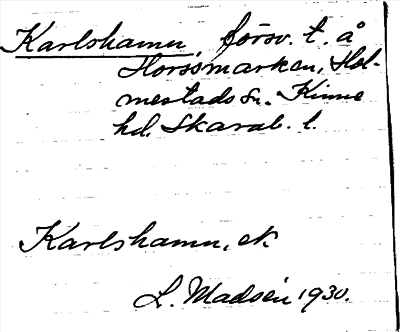 Karlshamn, försv. t. å
Horssmarken, Hol-
mestads sn. Kinne
hd. Skarab. l.
Karlshamn, ek
L. Madsén 1930.